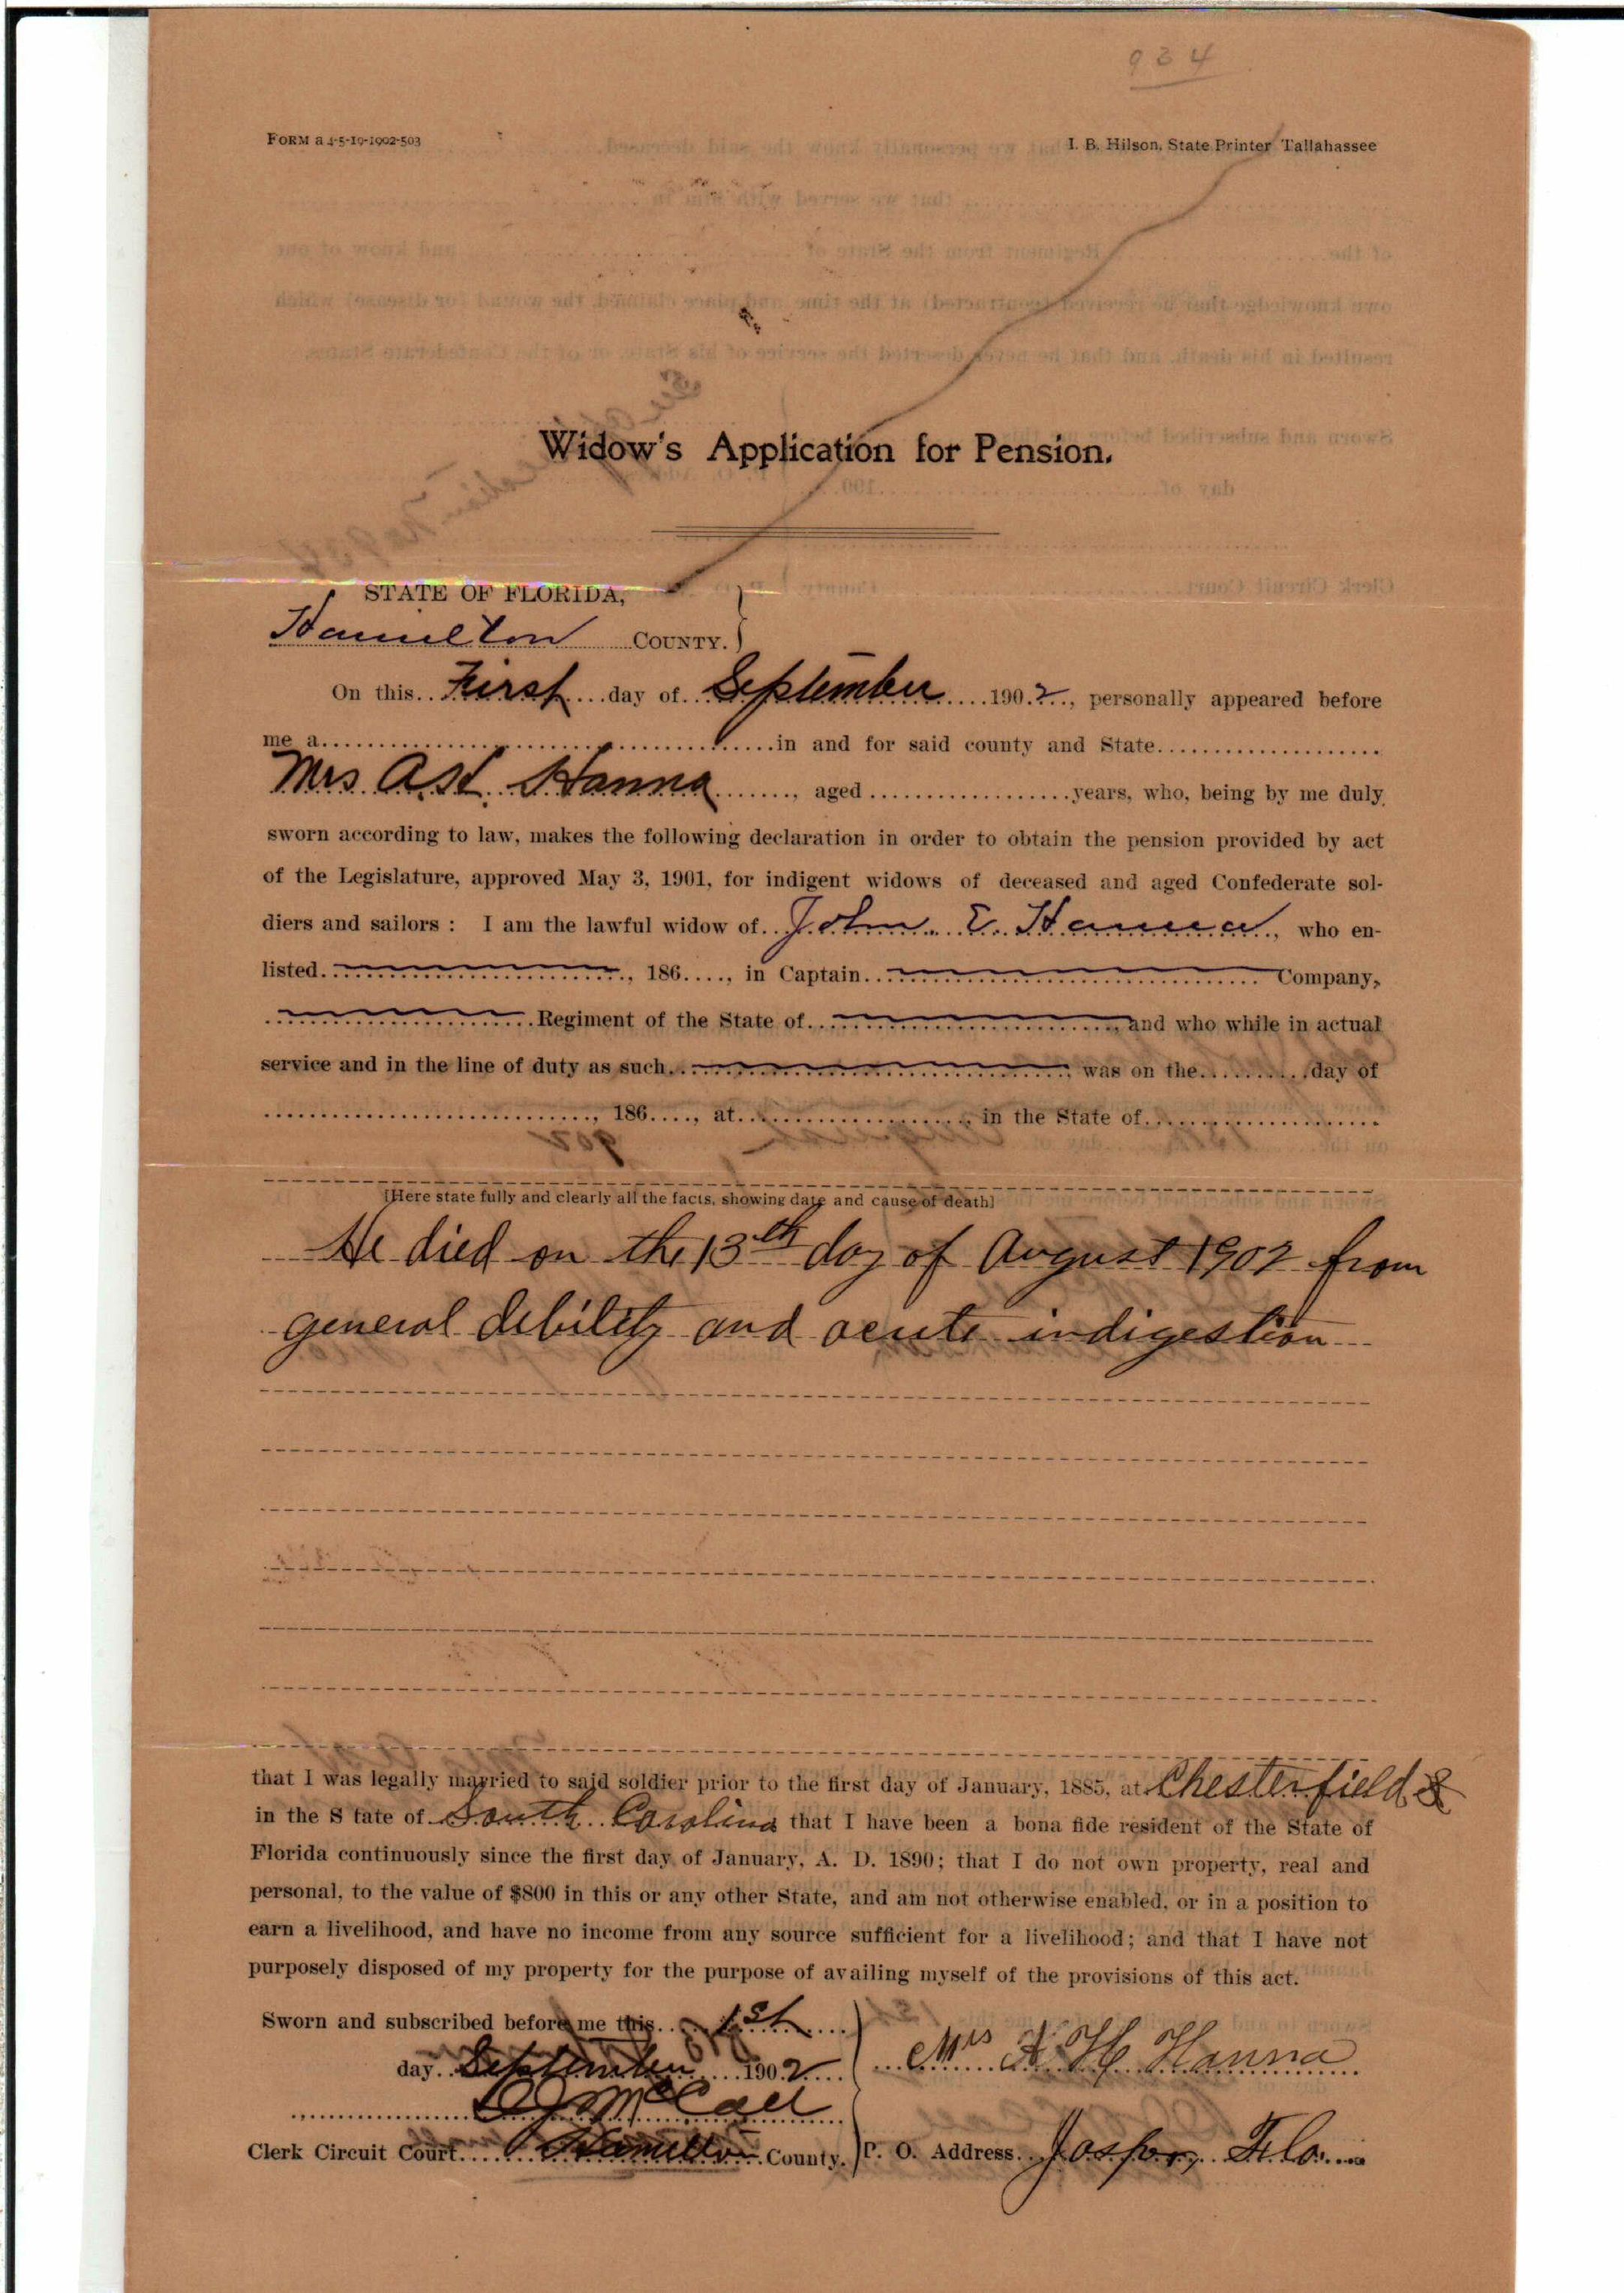 934
FORM a 4-5-19-1902-503
I. B. Hilson, State Printer Tallahassee
Widow's Application for Pension.
STATE OF FLORIDA,
Hamilton COUNTY.
On this First day of September 1902, personally appeared before
me a in and for said county and State
Mrs A.H. Hanna, aged years, who, being by me duly
sworn according to law, makes the following declaration in order to obtain the pension provided by act
of the Legislature, approved May 3, 1901, for indigent widows of deceased and aged Confederate sol-
diers and sailors : I am the lawful widow of John E. Hanna, who en-
listed, 186...., in Captain Company,
Regiment of the State of, and who while in actual
service and in the line of duty as such was on the day of
, 186...., at, in the State of
[Here state fully and clearly all the facts, showing date and cause of death]
He died on the 13th day of August 1902 from
general debility and acute indigestion
that I was legally married to said soldier prior to the first day of January, 1885, at Chesterfield
in the S tate of South Carolina that I have been a bona fide resident of the State of
Florida continuously since the first day of January, A. D. 1890; that I do not own property, real and
personal, to the value of $800 in this or any other State, and am not otherwise enabled, or in a position to
earn a livelihood, and have no income from any source sufficient for a livelihood; and that I have not
purposely disposed of my property for the purpose of availing myself of the provisions of this act.
Sworn and subscribed before me this 1st
day September 1902
Mrs A H Hanna
McCall
Clerk Circuit Court Hamilton County.
P. O. Address Jasper, Fla.